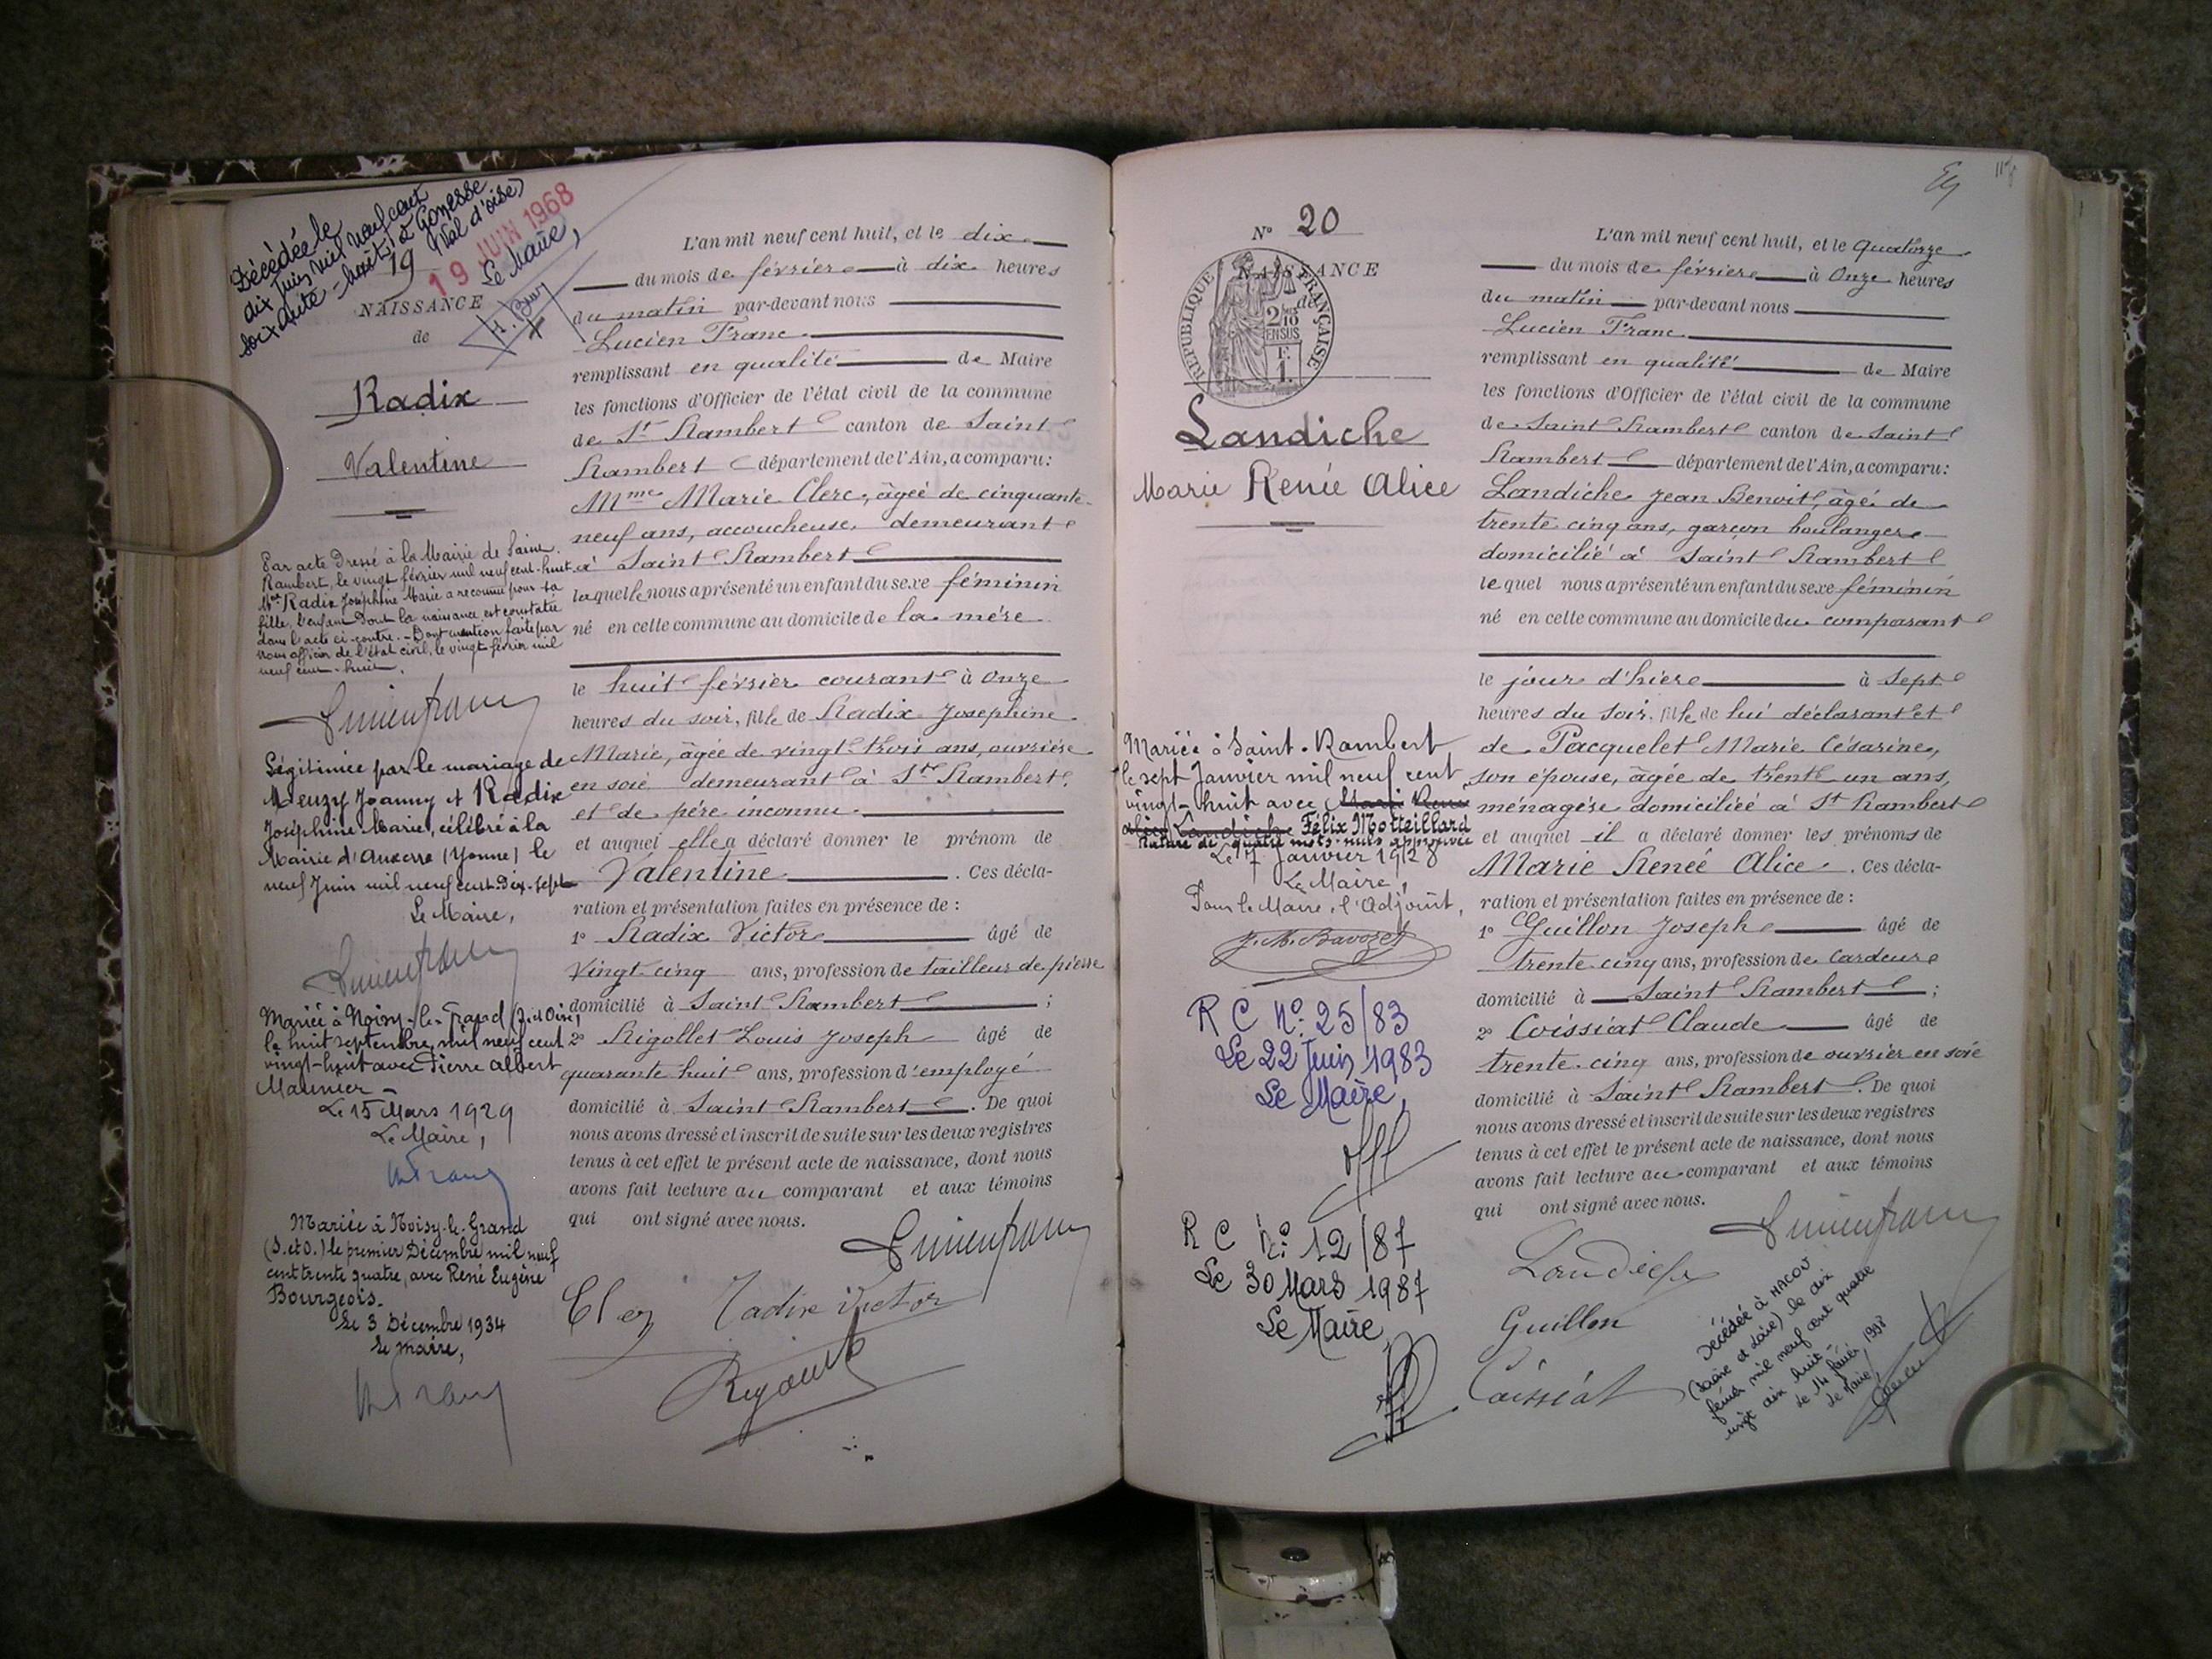 Décédée le
dix juin mil neuf cent
soixante-huit à Gonesse
(Val d'oise)
19 JUIN 1968
Le Maire,
19
NAISSANCE
de
Radix
Valentine
Par acte Dressé à la Mairie de Saint
Rambert, le vingt février mil neuf cent-huit
Radix Joséphine Marie a reconnu pour sa
fille, l'enfant dont la naissance est constatée
dans l'acte ci-contre. - Dont mention faite par
nous officier de l'état civil, le vingt février mil
neuf cent-huit.
Légitimée par le mariage de
Meuzy Joanny et Radix
Joséphine Marie, célébré à la
Mairie d'Auxerre (Yonne) le
neuf Juin mil neuf cent Dix-sept
Le Maire,
Mariée à Noisy-le-Grand (S. et Oise)
le huit septembre mil neuf cent
vingt-huit avec Pierre Albert
Maunier -
Le 15 Mars 1929
Le Maire,
Mariée à Noisy-le-Grand
(S. et O.) le premier Décembre mil neuf
cent trente quatre, avec René Eugène
Bourgeois.
Le 3 Décembre 1934
Le Maire,
L'an mil neuf cent huit, et le dix
du mois de février à dix heures
du matin par-devant nous
Lucien Franc
remplissant en qualité de Maire
les fonctions d'Officier de l'état civil de la commune
de St Rambert canton de Saint
Rambert département de l'Ain, a comparu:
Mme Marie Clerc, âgée de cinquante-
neuf ans, accoucheuse, demeurant
à Saint Rambert
laquelle nous a présenté un enfant du sexe féminin
né en cette commune au domicile de la mère
le huit février courant à Onze
heures du soir, fille de Radix Josephine
Marie, âgée de vingt-trois ans, ouvrière
en soie demeurant à St Rambert.
et de père inconnu
et auquel elle a déclaré donner le prénom de
Valentine. Ces décla-
ration et présentation faites en présence de :
1° Radix Victor âgé de
vingt cinq ans, profession de tailleur de pierre
domicilié à Saint Rambert ;
2° Rigollet Louis Joseph âgé de
quarante huit ans, profession d'employé
domicilié à Saint Rambert. De quoi
nous avons dressé et inscrit de suite sur les deux registres
tenus à cet effet le présent acte de naissance, dont nous
avons fait lecture au comparant et aux témoins
qui ont signé avec nous.
Radix Victor
N° 20
NAISSANCE
de
REPUBLIQUE FRANÇAISE
2/10
EN SUS
F.
1.
Landiche
Marie Renée Alice
Mariée à Saint-Rambert
le sept Janvier mil neuf cent
vingt-huit avec Marie Renée
Alice Landiche Félix Motteillard
Rature de quatre mots nuls approuvée
Le 7 Janvier 1928
Le Maire,
Pour le Maire, l'Adjoint,
J. M. Bavozet
R C N° 25/83
Le 22 Juin 1983
Le Maire,
R C N° 12/87
Le 30 Mars 1987
Le Maire
L'an mil neuf cent huit, et le Quatorze
du mois de février à Onze heures
du matin par-devant nous
Lucien Franc
remplissant en qualité de Maire
les fonctions d'Officier de l'état civil de la commune
de Saint Rambert canton de Saint
Rambert département de l'Ain, a comparu:
Landiche Jean Benoit, âgé de
trente cinq ans, garçon boulanger
domicilié à Saint Rambert
lequel nous a présenté un enfant du sexe féminin
né en cette commune au domicile du comparant
le jour d'hier à sept
heures du soir, fille de lui déclarant et
de Pacquelet Marie Césarine,
son épouse, âgée de trente un ans,
ménagère domiciliée à St Rambert
et auquel il a déclaré donner les prénoms de
Marie Renée Alice. Ces décla-
ration et présentation faites en présence de :
1° Guillon Joseph âgé de
trente cinq ans, profession de Cardeur
domicilié à Saint Rambert ;
2° Coissiat Claude âgé de
trente cinq ans, profession de ouvrier en soie
domicilié à Saint Rambert. De quoi
nous avons dressé et inscrit de suite sur les deux registres
tenus à cet effet le présent acte de naissance, dont nous
avons fait lecture au comparant et aux témoins
qui ont signé avec nous.
Landiche
Guillon
Coissiat
Décédée à MACON
(Saône et Loire) le dix
février mil neuf cent quatre
vingt dix huit -
Le 14 février 1998
Le Maire,